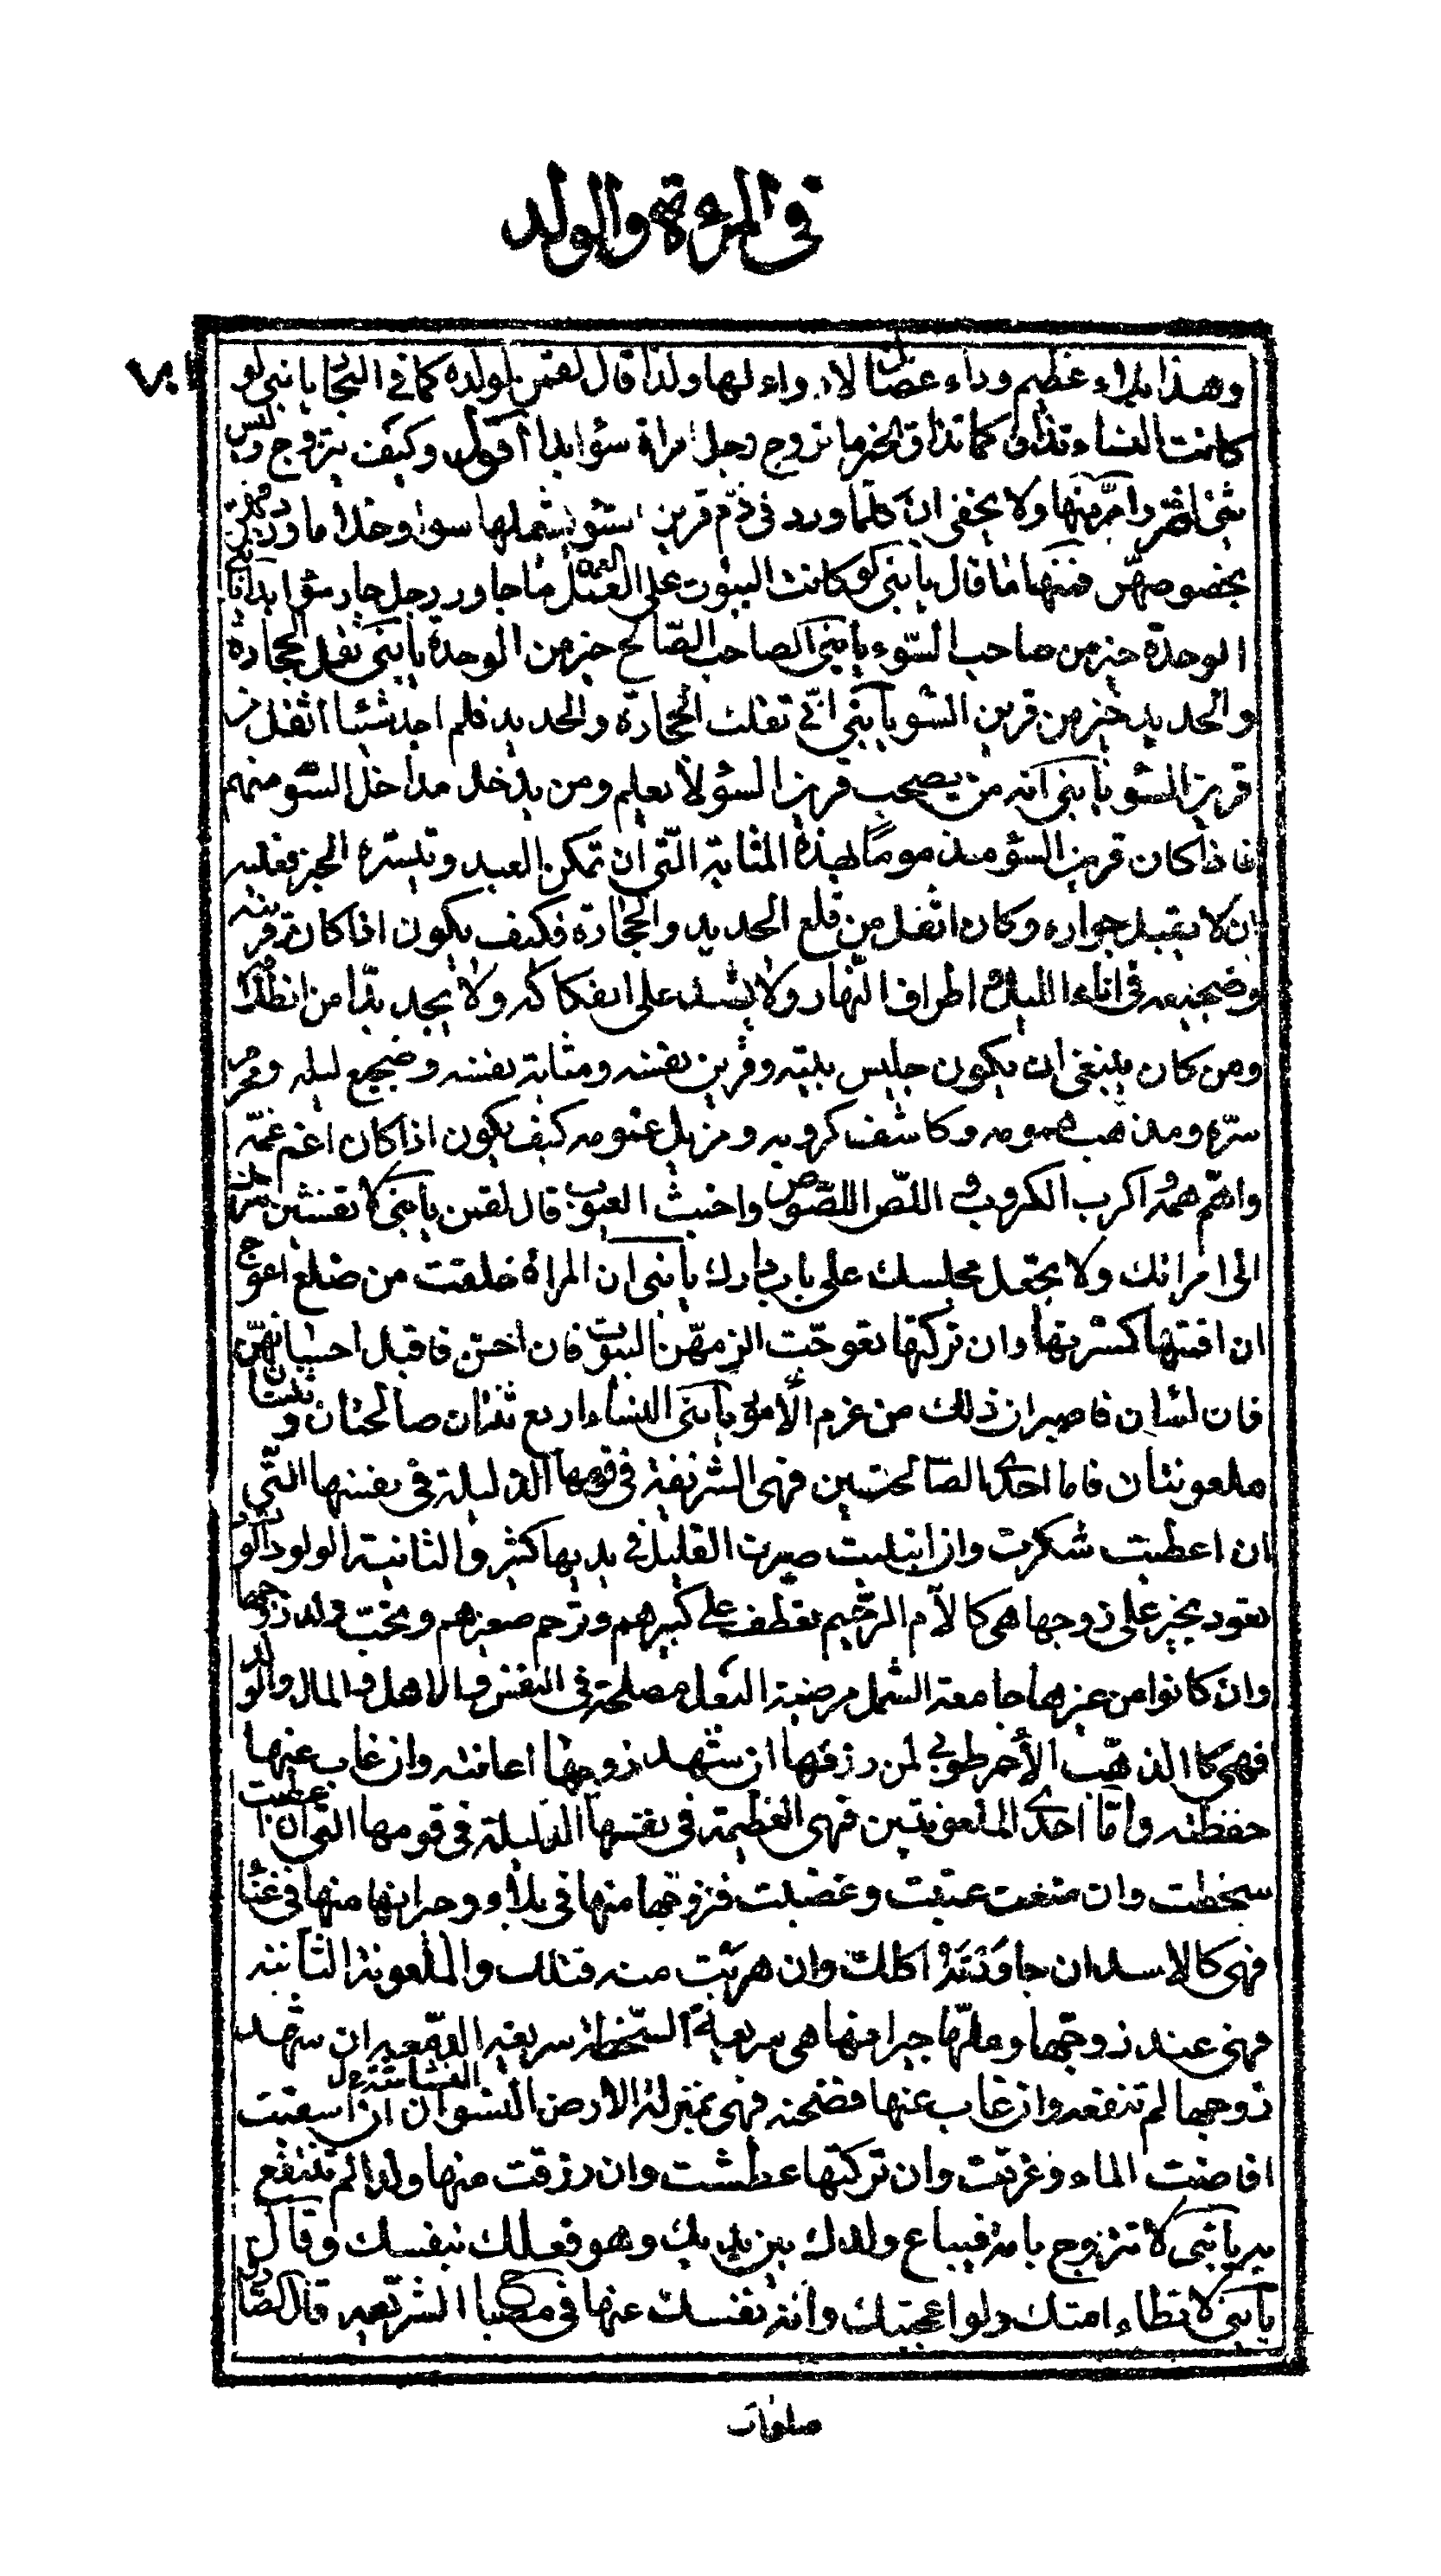 في المرءة والولد
١٧١
وهذا بلاء عظيم وداء عضال لا دواء لها ولذا قال لقمن لولده كما في البحار يا بني لو
كانت النساء تذاق كما تذاق الخمر ما تزوج رجل امراة سوء ابدا اقول وكيف يتزوج وليس
شئ اضر وامر منها ولا يخفى ان كلما ورد في ذم قرين السوء يشملها سواء وخذا ما ورد
بخصوصهن فمنها ما قال يا بني لو كانت البيوت على العمل ما جاور رجل جار سوء ابدا
الوحدة خير من صاحب السوء يا بني الصاحب الصالح خير من الوحدة يا بني نقل الحجارة
والحديد خير من قرين السوء يا بني اني نقلت الحجارة والحديد فلم اجد شيئا اثقل من
قرين السوء يا بني انه من يصحب قرين السوء لا يسلم ومن يدخل مداخل السوء متهم
فاذا كان قرين السوء مذموما بهذه المثابة التي ان تمكن العبد وتيسره الحجر فعليه
ان لا يقبل جواره وكان اثقل من قلع الحديد والحجارة فكيف يكون اذا كان قرينه
وضجيعه في اناء الليل واطراف النهار ولا يتسلط على انفكاكه ولا يجد بدا من
ومن كان ينبغي ان يكون جليس بيته وقرين نفسه ومثابة نفسه وضجيع ليله ومحرم
سره ومذهب همومه وكاشف كروبه ومزيل غمومه كيف يكون اذا كان اغم غمه
واهم همه واكرب الكروب واللص اللصوص واخبث العيوب قال لقمن يا بني لا تفشين سرك
الى امراتك ولا تجعل مجلسك على باب دارك يا بني ان المراة خلقت من ضلع اعوج
ان اقمتها كسرتها وان تركتها تعوجت الزمهن البيوت فان احسن فاقبل احسانهن
فان اسان فاصبر ان ذلك من عزم الأمور يا بني النساء اربع ثنتان صالحتان وثنتان
ملعونتان فاما احدى الصالحتين فهي الشريفة في قومها الذليلة في نفسها التي
ان اعطيت شكرت وان ابتليت صبرت القليل في يديها كثير والثانية الولود الودود
تعود بخير على زوجها هي كالام الرحيم تعطف على كبيرهم وترحم صغيرهم وتحب ولد زوجها
وان كانوا من غيرها جامعة الشمل مرضية البعل مصلحة في النفس والاهل والمال والولد
فهي كالذهب الأحمر طوبى لمن رزقها ان شهد زوجها اعانته وان غاب عنها
حفظته وأما احدى الملعونتين فهي العظيمة في نفسها الذليلة في قومها التي ان اعطيت
سخطت وان منعت عتبت وغضبت فزوجها منها في بلاء وجيرانها منها في عناء
فهي كالاسد ان جاورته اكلك وان هربت منه قتلك والملعونة الثانية
فهي عند زوجها وملها جيرانها هي سريعة السخطة سريعة الدمعة ان شهد
زوجها لم تنفعه وان غاب عنها فضحته فهي بمنزلة الأرض النشاشة ان اسقيت
افاضت الماء وغرقت وان تركتها عطشت وان رزقت منها ولدا لم تنتفع
به يا بني لا تتزوج بامة فيباع ولدك بين يديك وهو فعلك بنفسك وقال
يا بني لا تطاء امتك ولو اعجبتك وانه نفسك عنها في مصباح الشريعة قال الصادق
صلوات